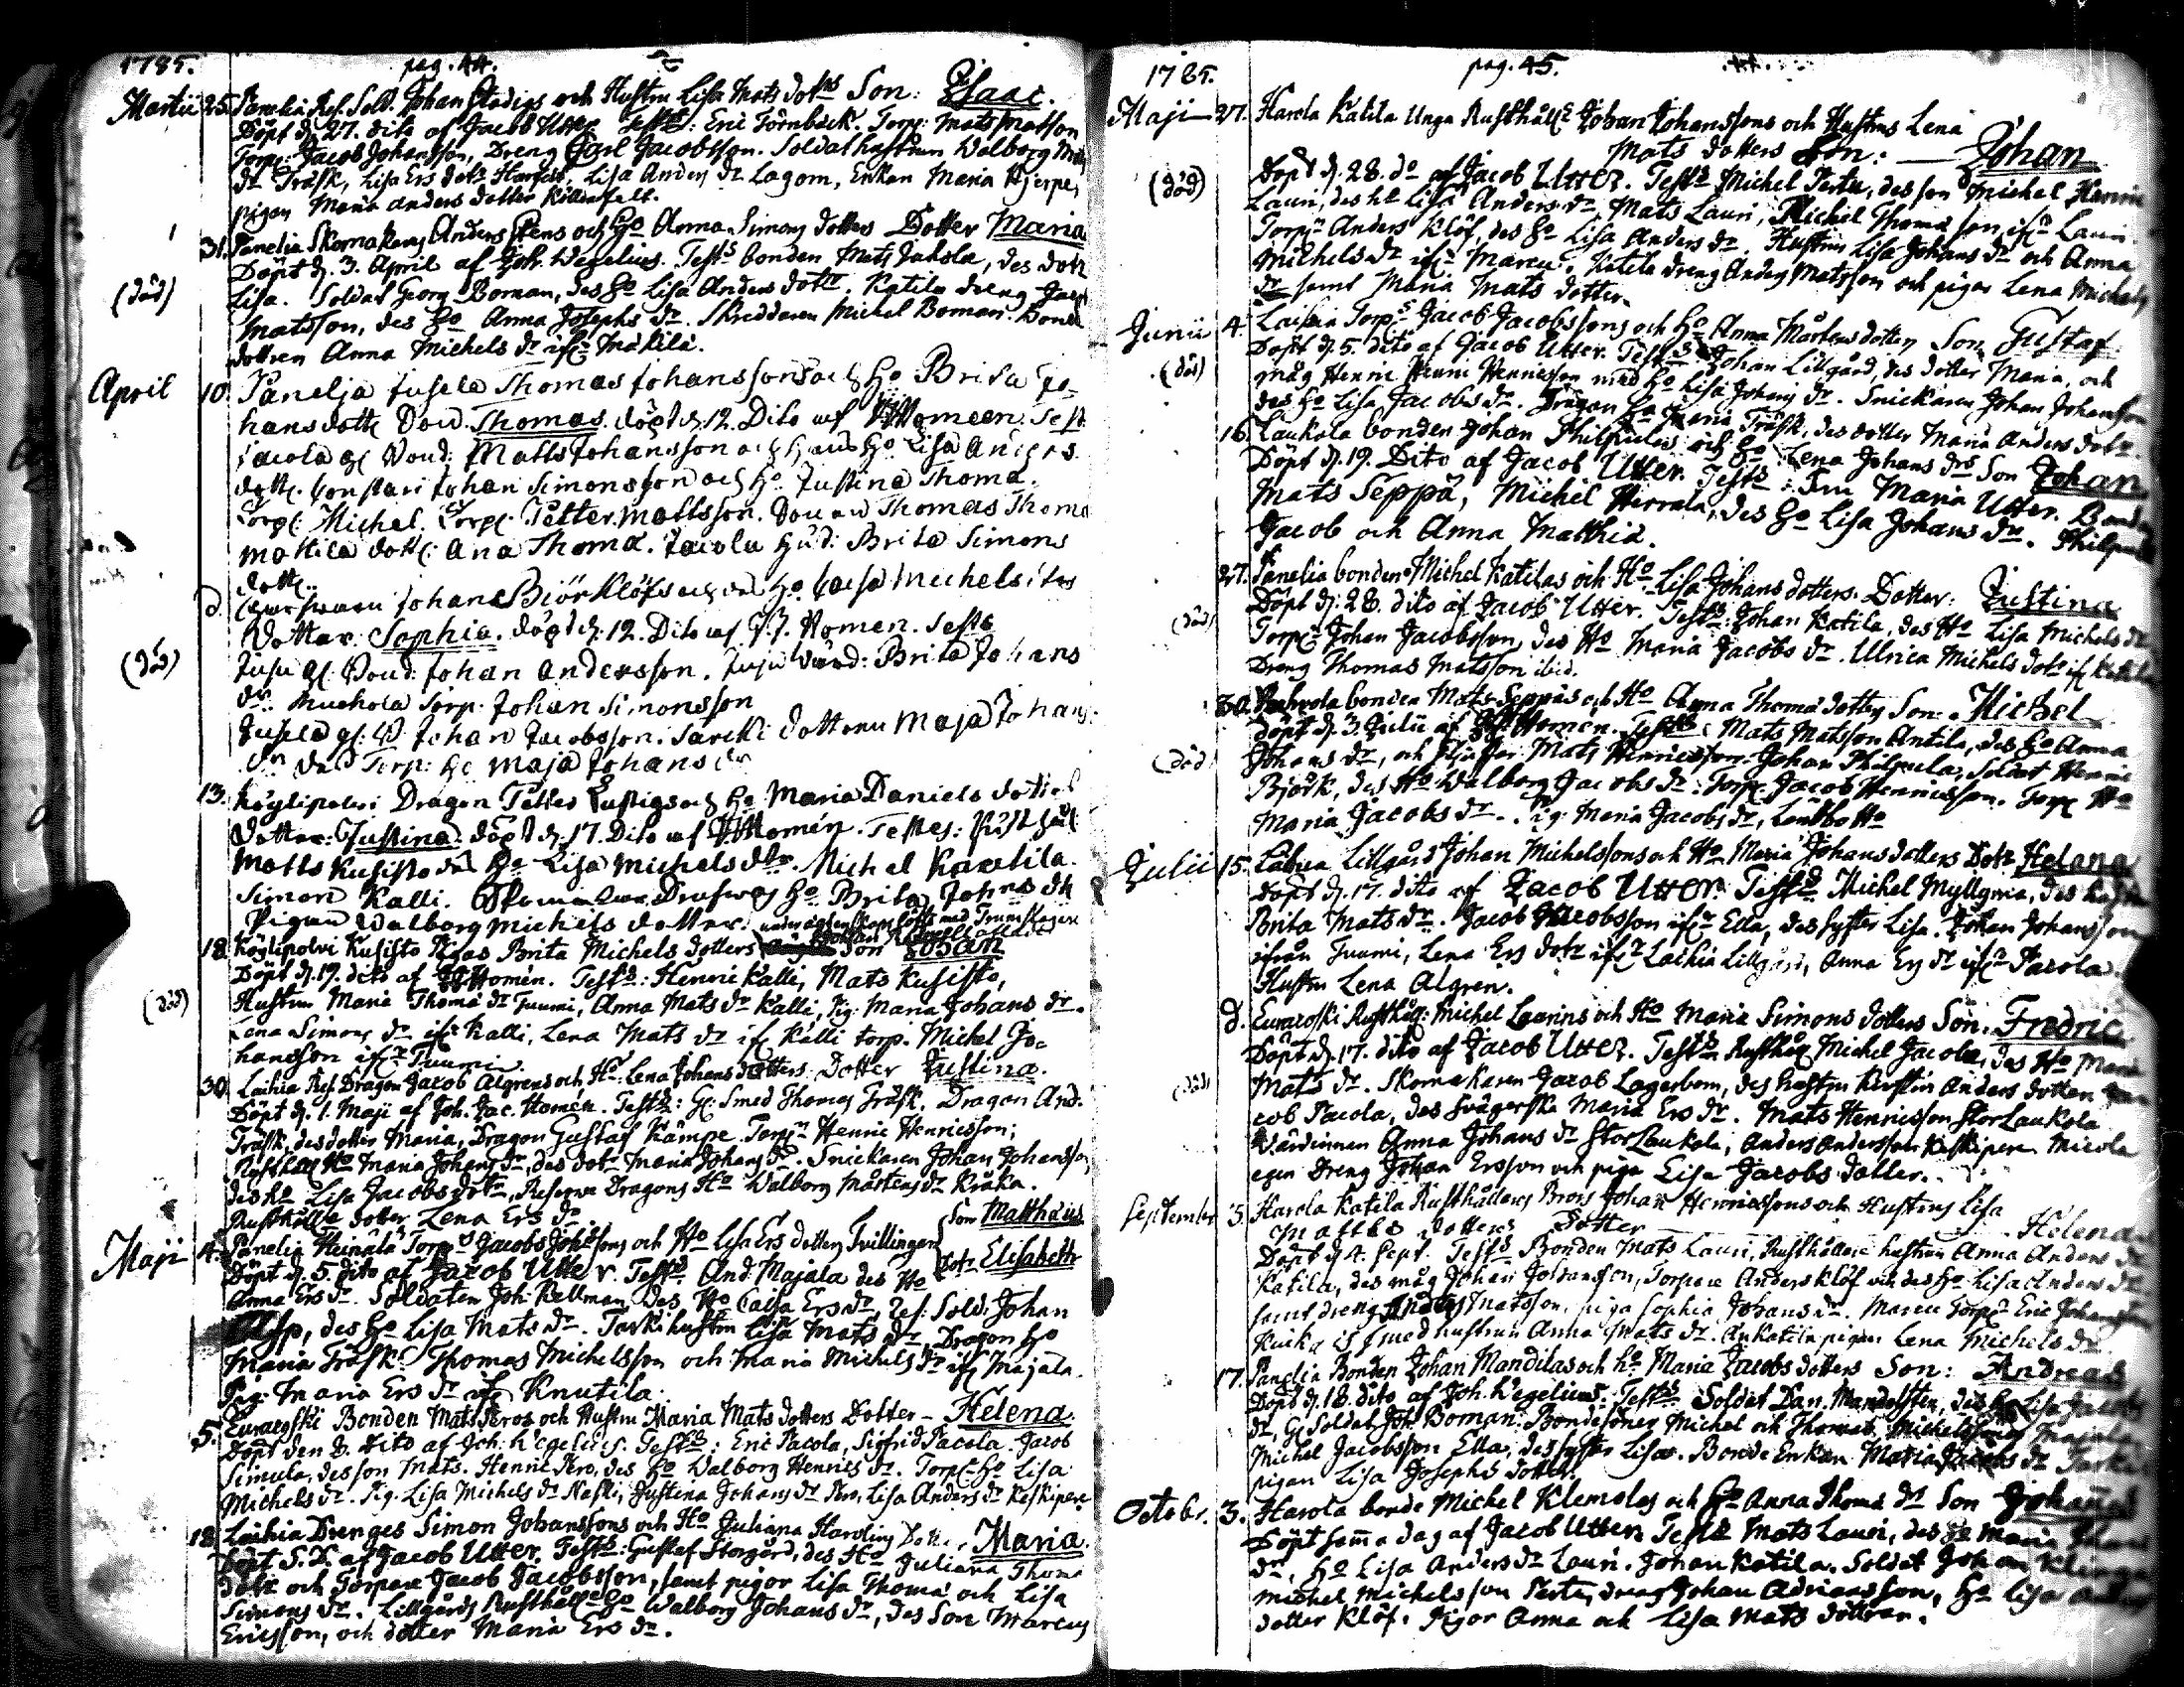 1785. pag. 44.
Martii 25. Panelia Res. Sold. Johan Stadigs och Hustru Lisa Mats dotrs Son: Isaac.
Döpt d. 27. dito af Jacob Utter Test: Eric Törnbäck. Torp: Mats Matsson
Torp: Jacob Johansson, Dreng Carl Jacobsson. Soldat hustrun Walborg
dr Träsk, Lisa Ers dotr, Lisa Anders dr Lagom, Enkan Maria Hjerpe,
pigan Maria Anders dotter Killenfelt.
31. Panelia Skomakaren Anders Stens och Ho Anna Simons dotters Dotter Maria
Döpt d. 3. April af Joh. Wegelius. Tests bonden Mats Jakola, des dotr
(död) Lisa. Soldat Georg Boman, des Ho Lisa Anders dottr. Katila dreng Jac
Matsson, des Ho Anna Josephs dr. Skreddaren Michel Boman. Bonde
dottren Anna Michels dr ifr Mäkilä.
April 10. Panelja Jusela Thomas Johanssons och Ho Brita Jo-
hans dottr Thomas. döpt d. 12. Dito af Homeen. Test
Jacola Matts Johansson och hans Ho Lisa Anders
dottr. Johan Simonsson och Ho Justina Thoma.
Torp: Michel. Torp: Petter Mattsson. Thomas Thoma
Mattila dottr: Ana Thoma. Jacola Brita Simons
dottr.
d. Johan Biörklöfs och Ho Caisa Michels
Dotter: Sophia. döpt d. 12. Dito af J. J. Homen. Tests
(död) Johan Andersson. Brita Johans
dr. Torp. Johan Simonsson
Jusela Johan Jacobsson. Sarcki dottren Maja Johans
dr Torp: Ho Maja Johans dr
13. Köylipolvi Dragon Petter Lustigs och Ho Maria Daniels dotters
dotter: Justina. döpt d. 17. Dito af Homén. Testes: Rusthål:
Matts Kusisto des Ho Lisa Michels dtr. Michel Karttila.
Simon Kalli. Ho Brita Johans dtr
Pigan Walborg Michels dotter. under ägtenskaps löfte med Trumslagaren
18. Köylipolvi Kusisto Pigas Brita Michels dotters Son Johan
Döpt d. 19. dito af Homén. Tests: Henric Kalli, Mats Kusisto,
(död) Hustrun Maria Thoma dr Tuumi, Anna Mats dr Kalli, Pig: Maria Johans dr.
Lena Simons dr ifr Kalli, Lena Mats dr ifr Kalli torp. Michel Jo-
hansson ifr Tuumi.
30. Laihia Res. Dragon Jacob Algrens och Ho Lena Johans dotters Dotter Justina.
Döpt d. 1. Maji af Joh. Jac. Homén. Tests: Gl. Smed Thomas Träsk. Dragon And.
Träsk, des dotter Maria, Dragon Gustaf Kämpe. Torpn Henric Henricsson;
Rusthåll Ho Maria Johans dr, des dotr Maria Johans dr. Snickaren Johan Johansson
des Ho Lisa Jacobs dotr, Reserve Dragons Ho Walborg Mårtens dr Kråka.
Rusthålls dotter Lena Ers dr
Maji 4. Panelia Heinälä Torps Jacobs Johssons och Ho Lisa Ers dotters Tvillingar Son Matthæus
Döpt d. 5. dito af Jacob Utter. Tests And. Majala des Ho Dotr Elisabeth
Anna Ers dr. Soldaten Joh. Kellman, des Ho Caisa Ers dr, Res: Sold: Johan
Asp, des Ho Lisa Mats dr. Tarki hustru Lisa Mats dr, Dragon Ho
Maria Träsk. Thomas Michelsson och Maria Michels dr ifr Majala.
Pig: Maria Ers dr ifr Knutila.
5. Euraoski Bonden Mats Peros och Hustru Maria Mats dotters Dotter - Helena.
Döpt den 8. Dito af Joh: Wegelius. Tests: Eric Pacola, Sigfrid Pacola. Jacob
Simula, des son Mats. Henric Pero, des Ho Walborg Henrics dr. Torp: Ho Lisa
Michels dr. Pig. Lisa Michels dr Naski, Justina Johans dr Pero, Lisa Anders dr Keskipere
18. Laihia Drenges Simon Johanssons och Ho Juliana Harolins Dotter Maria.
Döpt S. D. af Jacob Utter. Tests: Gustaf Storgård, des Ho Juliana Thoma
dotr och Torpare Jacob Jacobsson, samt pigor Lisa Thoma och Lisa
Simons dr. Lillgårds Rusthålls Ho Walborg Johans dr, des Son Marcus
Ericsson, och dotter Maria Ers dr.
1785. pag. 45.
Maji 27. Harola Katila Unga Rusthålls Johan Johanssons och Hustrus Lena
Mats dotters Son: — Johan
(död) Döpt d. 28. do af Jacob Utter. Tests Michel Pertu, des son Michel Henric
Lauri, des ht Lisa Anders dr, Mats Lauri, Michel Thoma son ifr Lauri.
Torpn Anders Klöf, des Ho Lisa Anders dr. Hustru Lisa Johans dr och Anna
Michels dr ifr Marcu. Katila dreng Anders Matsson och pigor Lena Michels
dr samt Maria Mats dotter.
Junii 4. Laihia Torps Jacob Jacobssons och Ho Anna Mårtens dotters Son Gustaf.
Döpt d. 5. dito af Jacob Utter. Tests Johan Lillgård, des dotter Maria, och
(död) måg Henric Henricsson med Ho Lisa Johans dr. Snickaren Johan Johansson
des Ho Lisa Jacobs dr. Dragon Ho Maria Träsk, des dotter Maria Anders dotr.
16. Laukola bonden Johan Philpulas och Ho Lena Johans drs Son Johan
Döpt d. 19. Dito af Jacob Utter. Tests: Fru Maria Utter. Bonden
Mats Seppä, Michel Herrala, des Ho Lisa Johans dr. Philpula
Jacob och Anna Matthia.
27. Panelia bonden Michel Katilas och Ho Lisa Johans dotters. Dotter: Justina
Döpt d. 28. dito af Jacob Utter. Tests: Johan Katila, des Ho Lisa Michels dr
(död) Torpn Johan Jacobsson, des Ho Maria Jacobs dr. Ulrica Michels dotr ifr Katila
Dreng Thomas Matsson ibid.
30. bonden Mats Seppäs och Ho Anna Thoma dotters Son: Michel
Döpt d. 3. Julii af Homen. Tests: Mats Matsson Antila, des Ho Anna
(död) Johans dr, och Mats Henricsson. Johan Philpula, Soldat Henric
Björk, des Ho Walborg Jacobs dr: Torp: Jacob Henricsson. Torp: Ho
Maria Jacobs dr. Pig: Maria Jacobs dr,
Julii 15. Laihia Lillgårds Johan Michelssons och Ho Maria Johans dotters Dotr Helena
Döpt d. 17. dito af Jacob Utter. Tests Michel Myllyma, des hustru
Brita Mats dr. Jacob Jacobsson ifr Ella, des syster Lisa. Johan Johansson
ifrån Tuumi, Lena Ers dotr ifr Laihia Lillgård, Anna Ers dr ifr Pacola.
Hustru Lena Algren.
d. Euraoski Rusthåll: Michel Laurins och Ho Maria Simons dotters Son. Fredric
Döpt d. 17. dito af Jacob Utter. Tests Rusthåll Michel Jacola, des Ho Maria
(död) Mats dr. Skomakaren Jacob Lagerbom, des hustru Kirstin Anders dotter
cob Pacola, des Svägerska Maria Ers dr. Mats Henricsson Stor Laukola
Värdinnan Anna Johans dr Stor Laukola, Anders Andersson Keskipere Micola
egen Dreng Johan Ersson och piga Lisa Jacobs dotter.
September 3. Harola Katila Rusthållares Brors Johan Henricssons och Hustrus Lisa
Matths dotters Dotter Helena
Döpt d 4. Sept. Tests Bonden Mats Lauri, Rusthållare hustrun Anna Anders dr
Katila, des måg Johan Johansson, Torpare Anders Klöf och des Ho Lisa Anders dr
samt dreng Anders Matsson, piga Sophia Johans dr. Marcu Torp: Eric Johansson
Kuika Smed hustrun Anna Mats dr. Ankatila pigan Lena Michels dr.
17. Panelia Bonden Johan Mandilas och ho Maria Jacobs dotters Son: Andreas
Döpt d. 18. dito af Joh. Wegelius. Tests Soldat Dan. Mandelsten, des Ho Lisa Jacobs
dr, Gl Soldat Joh Boman. Bondesöner Michel och Thomas Michelssöner Majala
Michel Jacobsson Ella, des syster Lisa. Bonde Enkan Maria Jacobs dr Tarkis
pigan Lisa Josephs dotter.
Octobr. 3. Harola bonde Michel Klemolas och Ho Anna Thoma dr Son Johannes
Döpt samma dag af Jacob Utter. Tests Mats Lauri, des Ho Maria Thoma
dr, Ho Lisa Anders dr Lauri. Johan Katila. Soldat Johan Klinga
Michel Michelsson Pertu, dreng Johan Adriansson, Ho Lisa Anders
dotter Klöf. Pigor Anna och Lisa Mats döttrar.